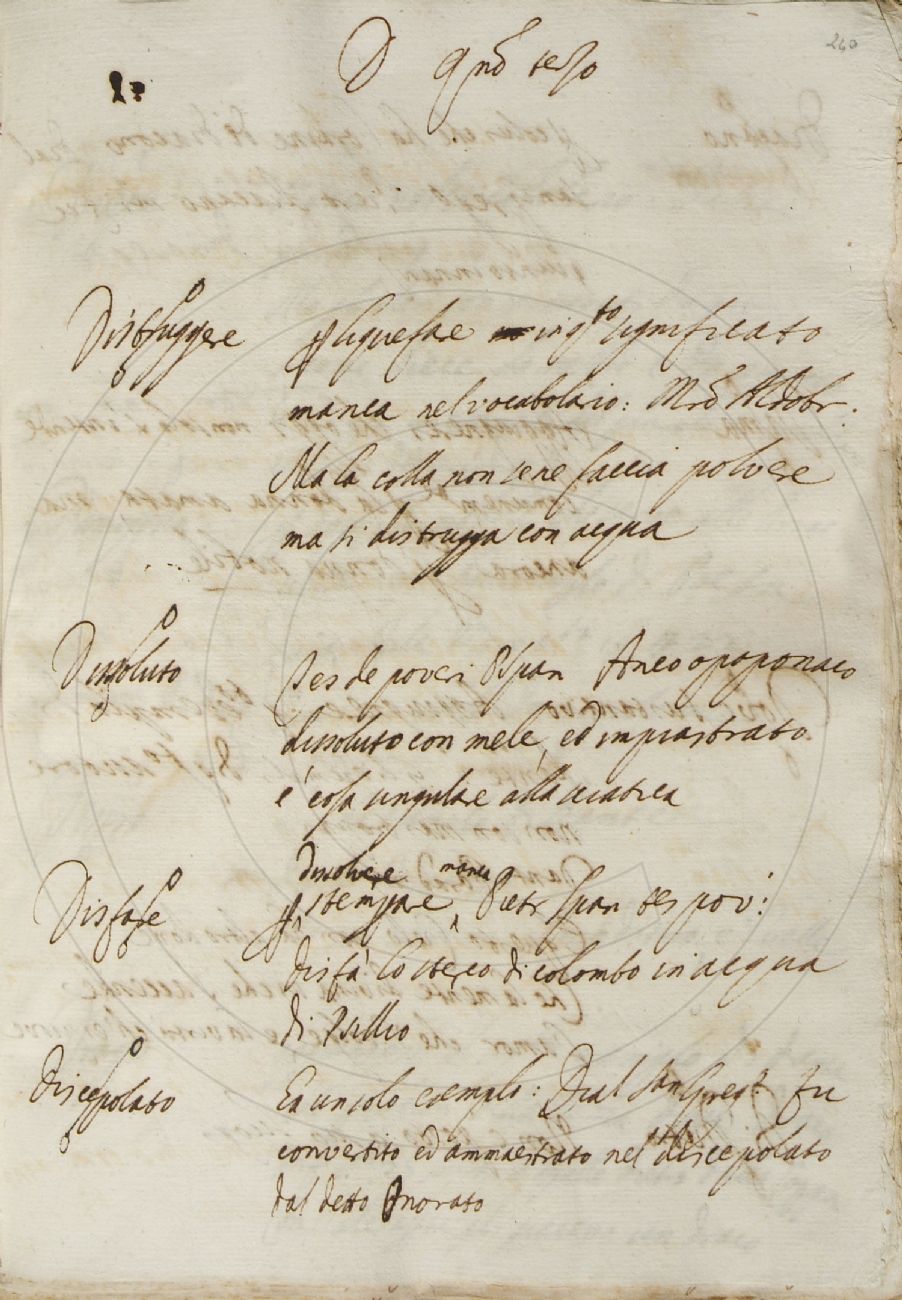 D qno terzo
240
Distruggere p liquefare in q.to significato
manca nel vocabolario: Mro Aldobr.
Ma la colla non se ne faccia polvere
ma si distrugga con acqua
Dissoluto Tes de poveri P Span Anco opoponaco
dissoluto con mele, ed impiastrato
è cosa singulare alla sciatica
dissolvere manca
Disfare p stempare Pietr Span tes pov:
disfà lo sterco di colombo in acqua
di Psillio
Discepolato Ea un solo esemplo: Dial San Greg.o fu
convertito ed ammaestrato nel discepolato
dal detto Onorato